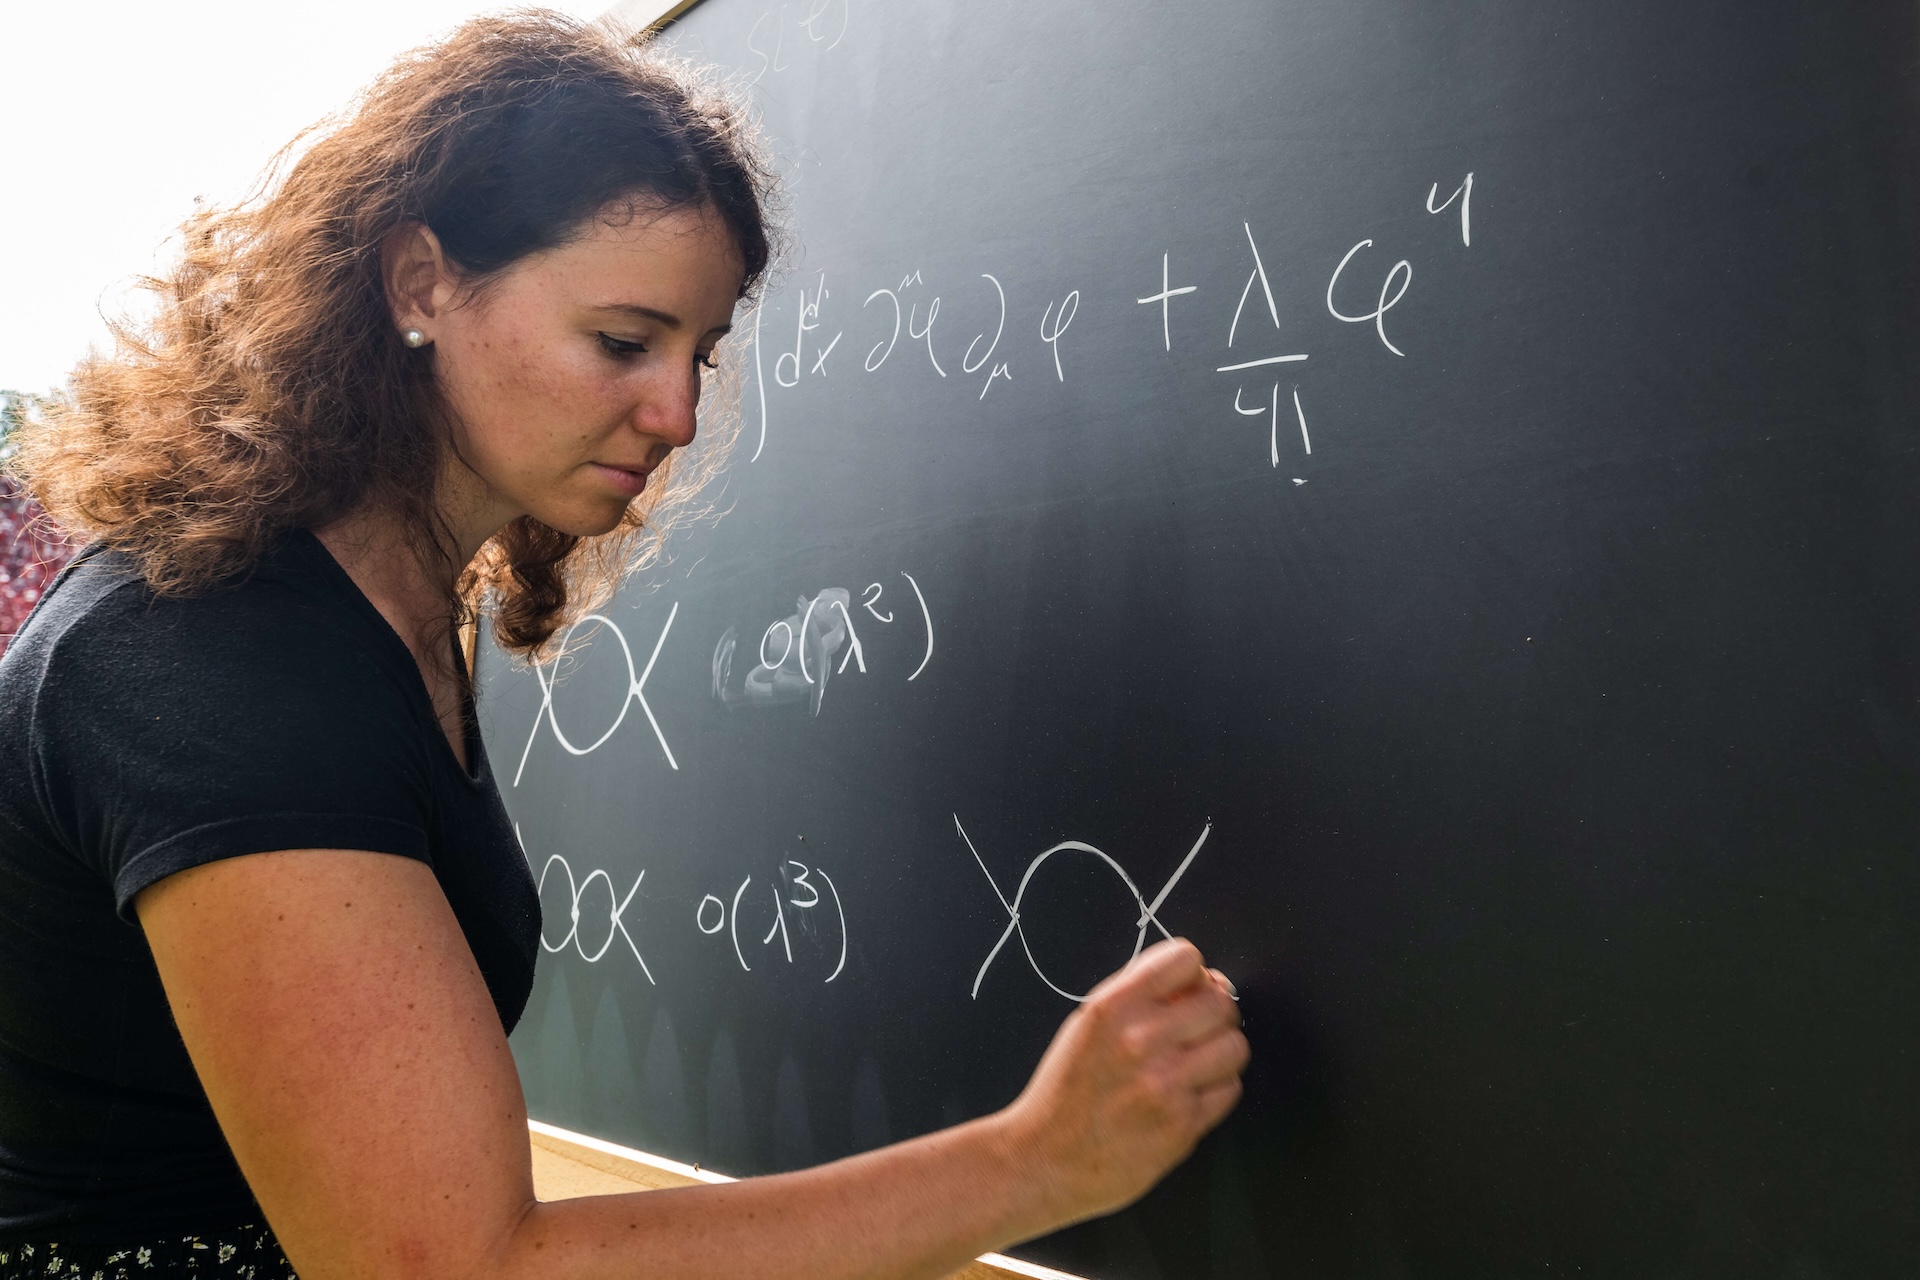 S(t)
∫dᵈx ∂^μφ ∂_μφ + λ/4! φ⁴
O(λ²)
O(λ³)